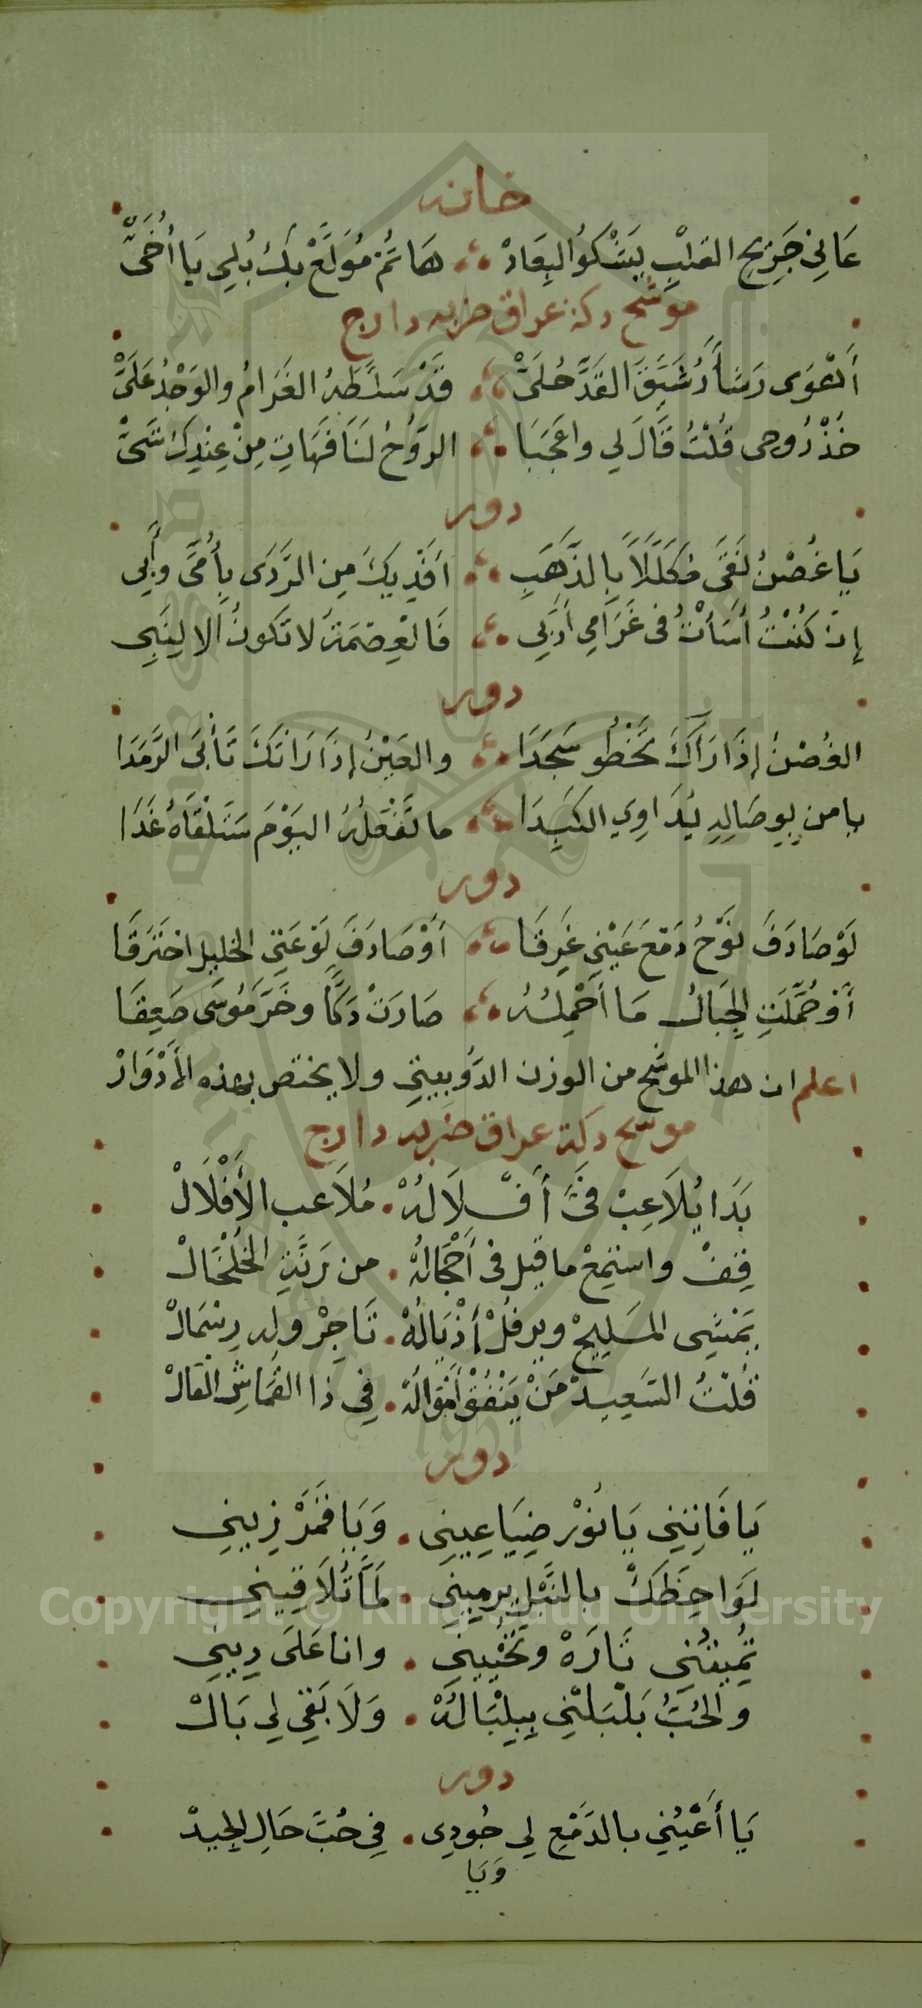 خانه
عَانِي جَرِيح القلْبِ يَشْكُو البِعَادْ ؞ هَائم مُوَلَّعْ بكْ بُلِي يَا أُخَيَّ
موشح دكة عراق ضربه دارج
أَهْوَى رَشَأً رُشَيِّقَ القَدِّ حُلَيّْ ؞ قَدْ سَلَّطَهُ الغَرَامُ والوَجْدُ عَلَيّْ
خُذْ رُوحى قُلْتُ قَالَ لي واعَجَبَا ؞ الرُّوحُ لَنَا فَهَاتِ مِنْ عِنْدِكَ شَىّْ
دور
يَا غُصْنُ نَقَى مُكَلَّلًا بِالذَّهَبِ ؞ افْدِيكَ مِن الرَّدَى بِأُمّى وَأَبِى
إن كُنْتُ أَسَأْتُ فى غَرَامِى أَدَبِى ؞ فَالْعِصْمَةُ لا تكونُ الا لِنَبِي
دور
الغُصْنُ إذَا رَآكَ تَخْطُو سَجَدَا ؞ والعَيْنُ إذَا رَاتكَ تَأْبَى الرَّمَدَا
يا من بِوِصَالِهِ يُدَاوِي الكَبِدَا ؞ ما تَفْعَلُهُ اليَوْمَ سَتَلْقَاهُ غَدَا
دور
لَوْ صَادَفَ نُوْحُ دَمْعَ عَيْنِي غَرِقَا ؞ أَوْ صَادَفَ لَوْعَتِي الخليل احْتَرَقَا
أَوْ حُمّلَتِ الجِبَالُ مَا أَحْمِلُهُ ؞ صَارَتْ دَكًّا وخَرَّ مُوسَى صَعِقَا
اعلم ان هذا الموشح من الوزن الدُّوبيتي ولا يختص بهذه الأَدْوَارْ
موشح دكة عراق ضربه دارج
بَدَا يُلَاعِبْ فى أَفْلَالُهْ . مُلاَعب الأَفْلَالْ
قِفْ واسْتَمِعْ ما قيل فى أَحْجَالُهْ . من رَنَّةِ الخَلْخَالْ
يَمْشِى المَلِيحْ ويرفُلْ أَذْيَالُهْ . تَاجِرْ وله رِسْمَالْ
قُلْتُ السَّعِيدْ مَنْ يَنْفُقْ أَمْوَالُهْ . فِي ذَا القُمَاشِ العَالْ
دور
يَا فَاتِنِي يَا نُوْر ضِيَا عينِي . وَيَا قَمَرْ زِيني
لَوَاحِظَكْ بالنَّبْلِ يرمِيني . لَمَّا تُلَاقِيني
تمِيتْنِي تَارَهْ وتُحْييني . وانا عَلَى دِيني
والحُبُّ بَلْبَلْنِي بِبِلْبَالُهْ . وَلَا بَقِي لِي بَالْ
دور
يَا أَعْيُنِي بالدَّمْع لِى جُودِى . فِي حُبّ حَالِ الجِيدْ
وَيَا
Copyright © King Saud University